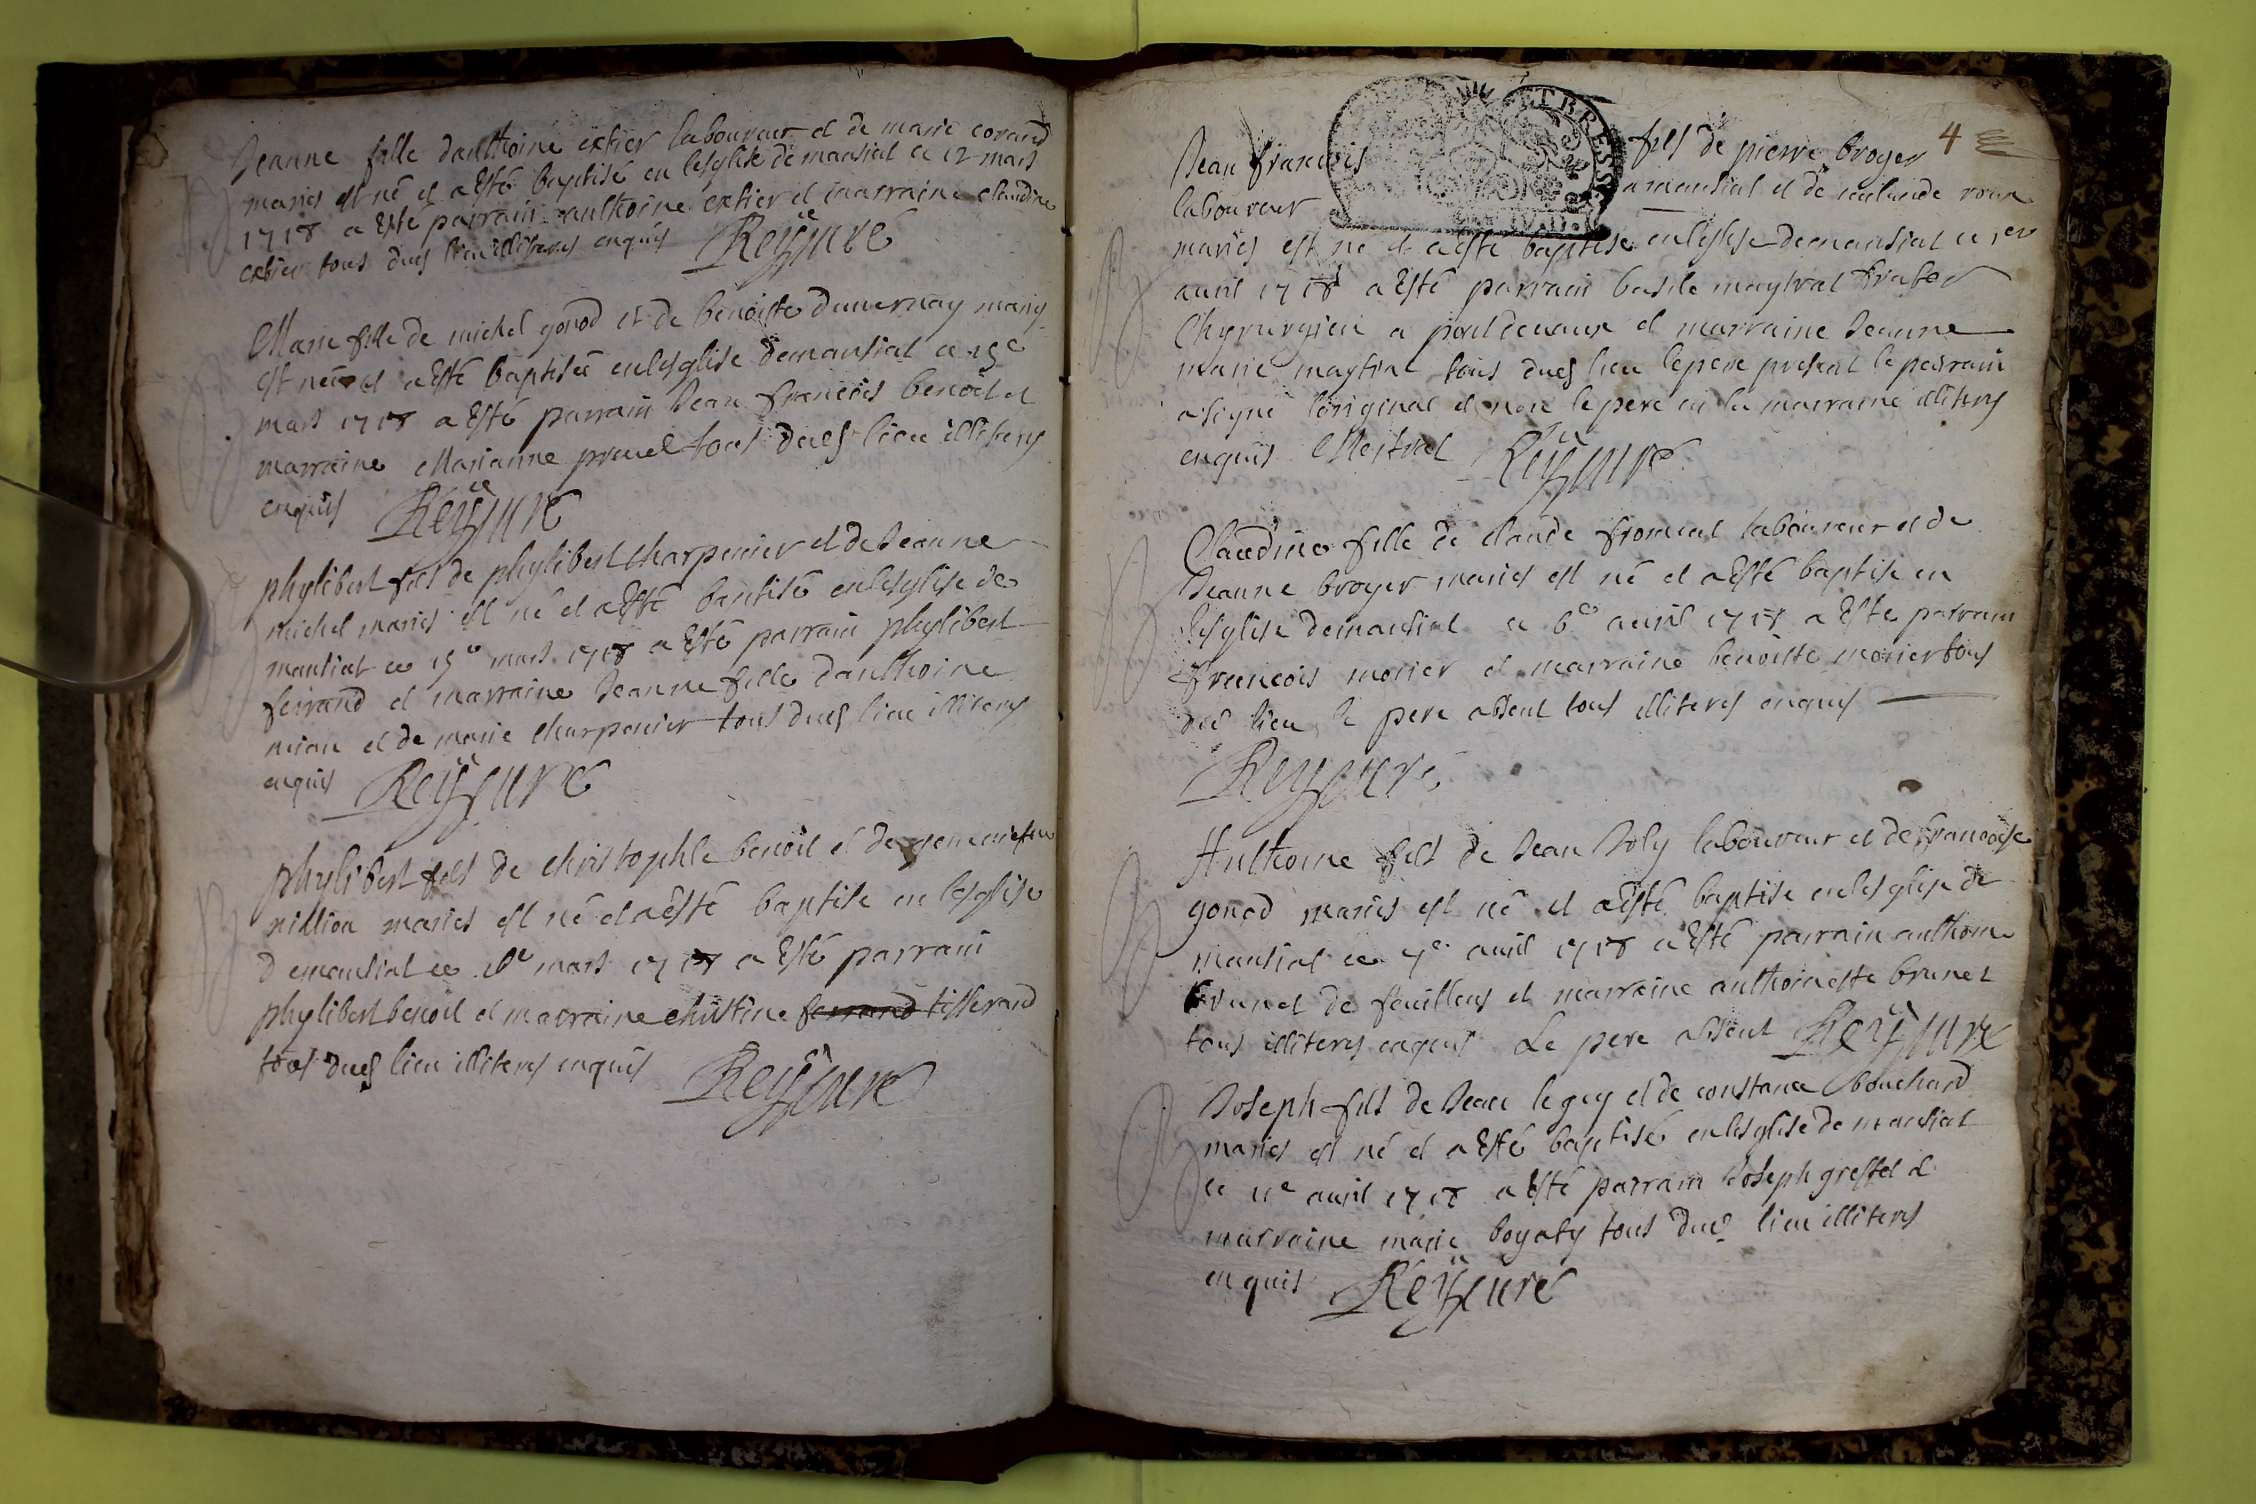 Jeanne fille danthoine extier laboureur et de marie corand
maries est né et a esté baptisé en lesglise de mansiat ce 12 mars
1718 a esté parrain anthoine extier et marraine claudine
extier tous dud lieu illiteres enquis Reÿ curé
Marie fille de michel gonod et de benoiste dauvernay maries
est neé et a esté baptiseé en lesglise de mansiat ce
mars 1718 a esté parrain Jean francois benoit et
marraine Marianne pruuel tous dud lieu illiteres
enquis Reÿ curé
phylibert fils de phylibert charpenier et de Jeanne
michel maries est né et a esté baptisé en lesglise de
mansiat ce mars 1718 a esté parrain phylibert
ferrand et marraine Jeanne fille danthoine
nion et de marie charpenier tous dud lieu illiteres
enquis Reÿ curé
phylibert fils de christophle benoit et de
million maries est né et a esté baptise en lesglise
demansiat ce mars 1718 a esté parrain
phylibert benoit et marraine christine ferrand tisserand
tous dud lieu illiteres enquis Reÿ curé
4
Jean francois fils de pierre broyer
laboureur a mansiat et de roux
maries est né et a esté baptise en lesglise demansiat ce 1er
avril 1718 a esté parrain basile maytral
Chyrurgien a pontdevaux et marraine Jeanne
marie maytral tous dud lieu le pere present le parrain
a signé loriginal et non le pere ni la marraine illiteres
enquis Mestral Reÿ curé
Claudine fille de claude froment laboureur et de
Jeanne broyer maries est né et a esté baptise en
lesglise demansiat ce 6e avril 1718 a este parrain
francois morier et marraine benoiste morier tous
dud lieu le pere absent tous illiteres enquis
Reÿ curé
Anthoine fils de Jean Joly laboureur et de francoise
gonod maries est né et a esté baptise en lesglise de
mansiat ce 7e avril 1718 a esté parrain anthoine
brunet de feuillens et marraine anthoineste brunet
tous illiteres enquis Le pere absent Reÿ curé
Joseph fils de Jean leguy et de constance bouchard
maries est né et a esté baptisé en lesglise de mansiat
ce 11e avril 1718 a esté parrain Joseph greffet et
marraine marie boyaty tous dud lieu illiteres
enquis Reÿ curé